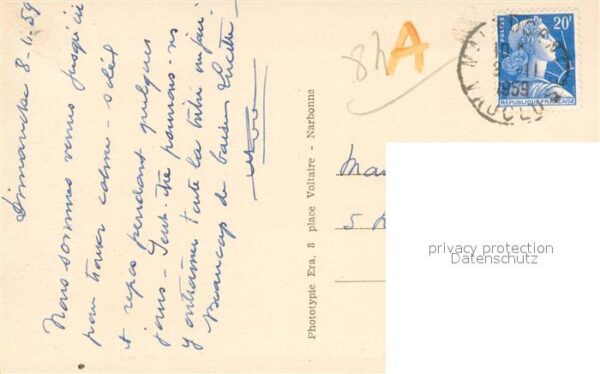 Dimanche 8-11.59
Nous sommes venus jusqu'ici
pour trouver calme - soleil
et repos pendant quelques
jours - Peut-être pourrons-ns
y entrainer toute la tribu un jour.
Beaucoup de baisers Lucette
Phototypie Era, 8 place Voltaire - Narbonne
82 A
POSTES
20F
REPUBLIQUE FRANÇAISE
-11
1959
VAUCLUSE
Ma
5
privacy protection
Datenschutz